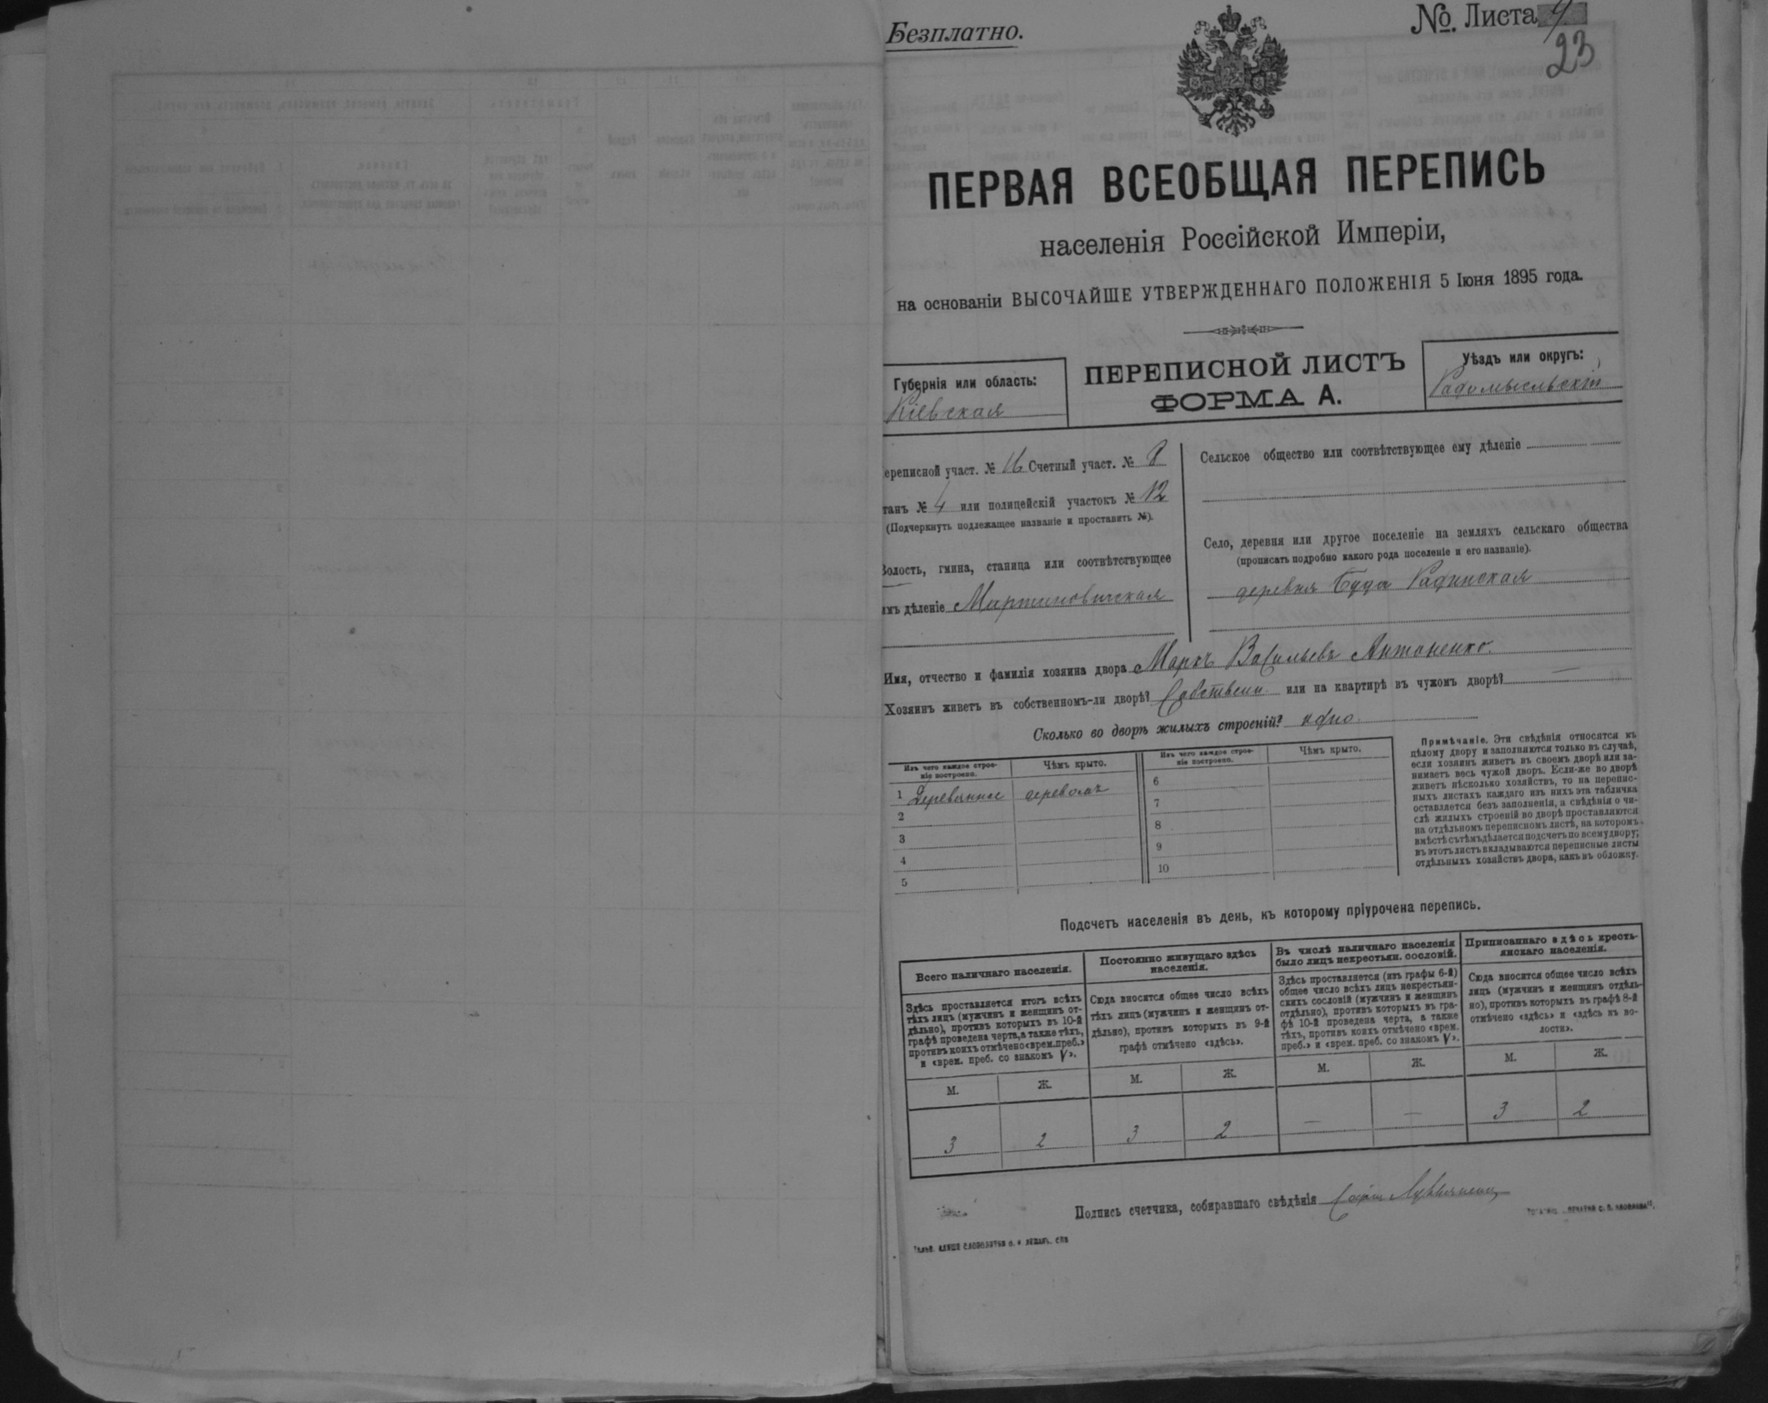 Безплатно.
№. Листа 9
23
ПЕРВАЯ ВСЕОБЩАЯ ПЕРЕПИСЬ
населенія Россійской Имперіи,
на основаніи ВЫСОЧАЙШЕ УТВЕРЖДЕННАГО ПОЛОЖЕНІЯ 5 Іюня 1895 года.
Губернія или область:
Кіевская
ПЕРЕПИСНОЙ ЛИСТЪ
ФОРМА А.
Уѣздъ или округъ:
Радомысльскій
ереписной участ. № 16 Счетный участ. № 8
танъ № 4 или полицейскій участокъ № 12
(Подчеркнуть подлежащее названіе и проставить №).
Волость, гмина, станица или соотвѣтствующее
имъ дѣленіе Мартиновичская
Сельское общество или соотвѣтствующее ему дѣленіе
Село, деревня или другое поселеніе на земляхъ сельскаго общества
(прописать подробно какого рода поселеніе и его названіе).
деревня Буда Радинская
Имя, отчество и фамилія хозяина двора Маркъ Васильевъ Антоненко.
Хозяинъ живетъ въ собственномъ-ли дворѣ? Собствен. или на квартирѣ въ чужомъ дворѣ? —
Сколько во дворѣ жилыхъ строеній? одно
Изъ чего каждое строе-
ніе построено.
Чѣмъ крыто.
Изъ чего каждое строе-
ніе построено.
Чѣмъ крыто.
1 Деревянное деревомъ
2
3
4
5
6
7
8
9
10
Примѣчаніе. Эти свѣдѣнія относятся къ
цѣлому двору и заполняются только въ случаѣ,
если хозяинъ живетъ въ своемъ дворѣ или за-
нимаетъ весь чужой дворъ. Если-же во дворѣ
живетъ нѣсколько хозяйствъ, то на перепис-
ныхъ листахъ каждаго изъ нихъ эта табличка
оставляется безъ заполненія, а свѣдѣнія о чи-
слѣ жилыхъ строеній во дворѣ проставляются
на отдѣльномъ переписномъ листѣ, на которомъ
вмѣстѣ съ тѣмъ дѣлается подсчетъ по всему двору;
въ этотъ листъ вкладываются переписные листы
отдѣльныхъ хозяйствъ двора, какъ въ обложку.
Подсчетъ населенія въ день, къ которому пріурочена перепись.
Всего наличнаго населенія.
Здѣсь проставляется итогъ всѣхъ
тѣхъ лицъ (мужчинъ и женщинъ от-
дѣльно), противъ которыхъ въ 10-й
графѣ проведена черта, а также тѣхъ,
противъ коихъ отмѣчено «врем. преб.»
и «врем. преб. со знакомъ V».
Постоянно живущаго здѣсь
населенія.
Сюда вносится общее число всѣхъ
тѣхъ лицъ (мужчинъ и женщинъ от-
дѣльно), противъ которыхъ въ 9-й
графѣ отмѣчено «здѣсь».
Въ числѣ наличнаго населенія
было лицъ некрестьян. сословій.
Здѣсь проставляется (изъ графы 6-й)
общее число всѣхъ лицъ некрестьян-
скихъ сословій (мужчинъ и женщинъ
отдѣльно), противъ которыхъ въ гра-
фѣ 10-й проведена черта, а также
тѣхъ, противъ коихъ отмѣчено «врем.
преб.» и «врем. преб. со знакомъ V».
Приписаннаго здѣсь кресть-
янскаго населенія.
Сюда вносится общее число всѣхъ
лицъ (мужчинъ и женщинъ отдѣль-
но), противъ которыхъ въ графѣ 8-й
отмѣчено «здѣсь» и «здѣсь къ во-
лости».
М. Ж. М. Ж. М. Ж. М. Ж.
3 2 3 2 — — 3 2
Подпись счетчика, собиравшаго свѣдѣнія